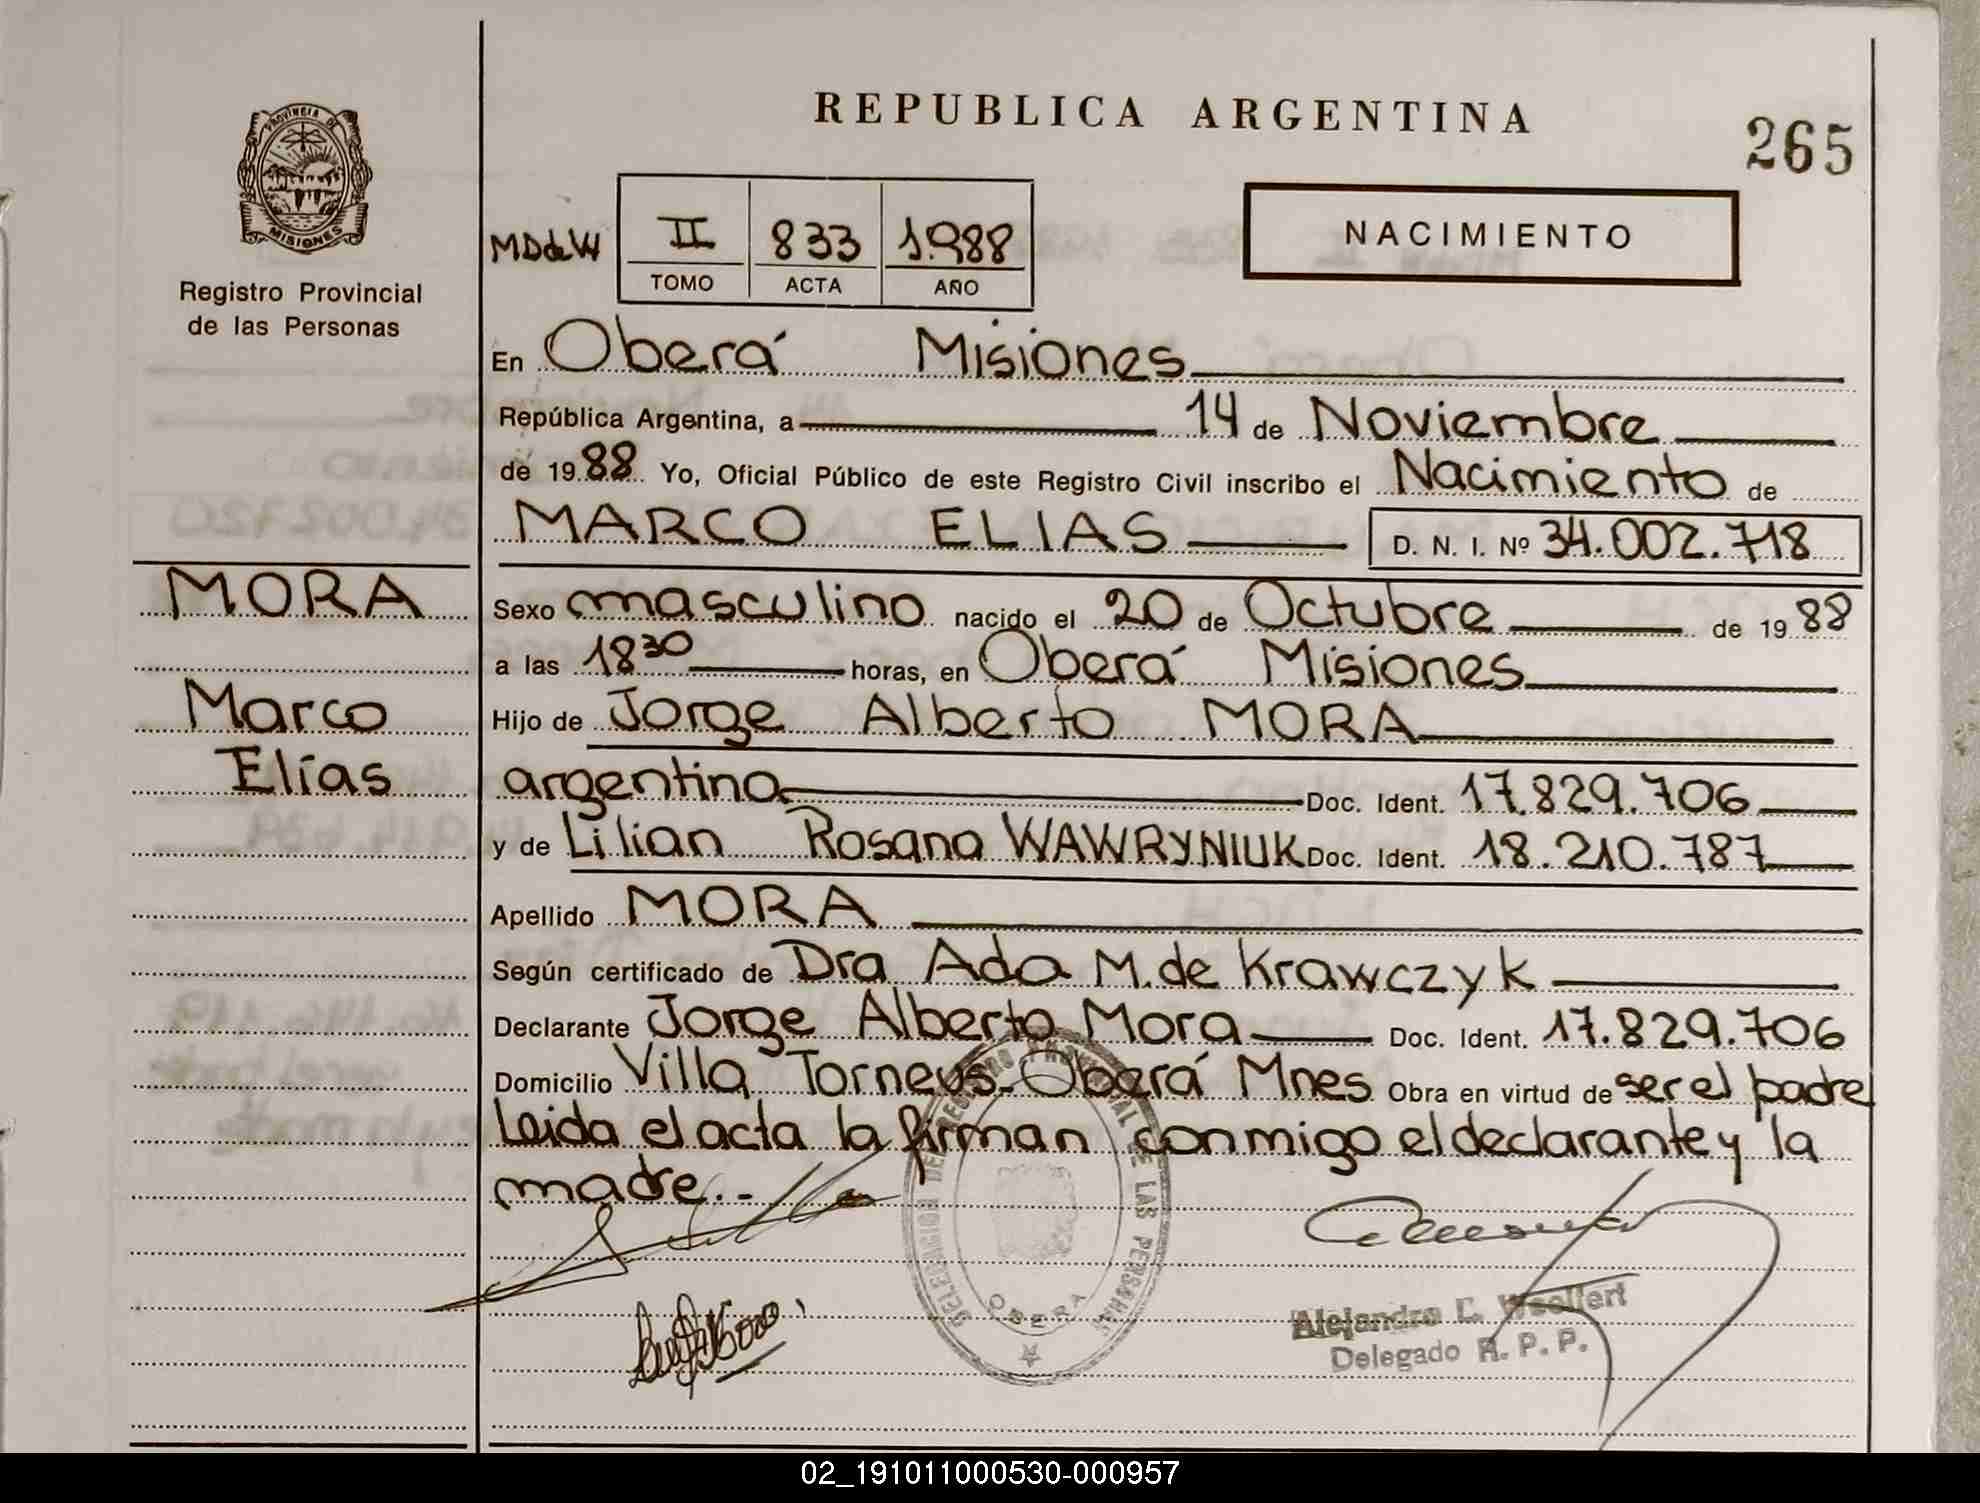 REPUBLICA ARGENTINA
265
PROVINCIA DE
MISIONES
Registro Provincial
de las Personas
MDdeW
II 833 1.988
TOMO ACTA AÑO
NACIMIENTO
En Oberá Misiones
República Argentina, a 14 de Noviembre
de 1988 Yo, Oficial Público de este Registro Civil inscribo el Nacimiento de
MARCO ELIAS D. N. I. Nº 34.002.718
MORA
Marco
Elías
Sexo masculino nacido el 20 de Octubre de 1988
a las 18³⁰ horas, en Oberá Misiones
Hijo de Jorge Alberto MORA
argentino Doc. Ident. 17.829.706
y de Lilian Rosana WAWRYNIUK Doc. Ident. 18.210.787
Apellido MORA
Según certificado de Dra Ada M. de Krawczyk
Declarante Jorge Alberto Mora Doc. Ident. 17.829.706
Domicilio Villa Torneus-Oberá Mnes Obra en virtud de ser el padre
Leida el acta la firman conmigo el declarante y la
madre.-
DELEGACION DEL REGISTRO PROVINCIAL DE LAS PERSONAS
OBERA
Alejandro
Delegado R. P. P.
02_191011000530-000957